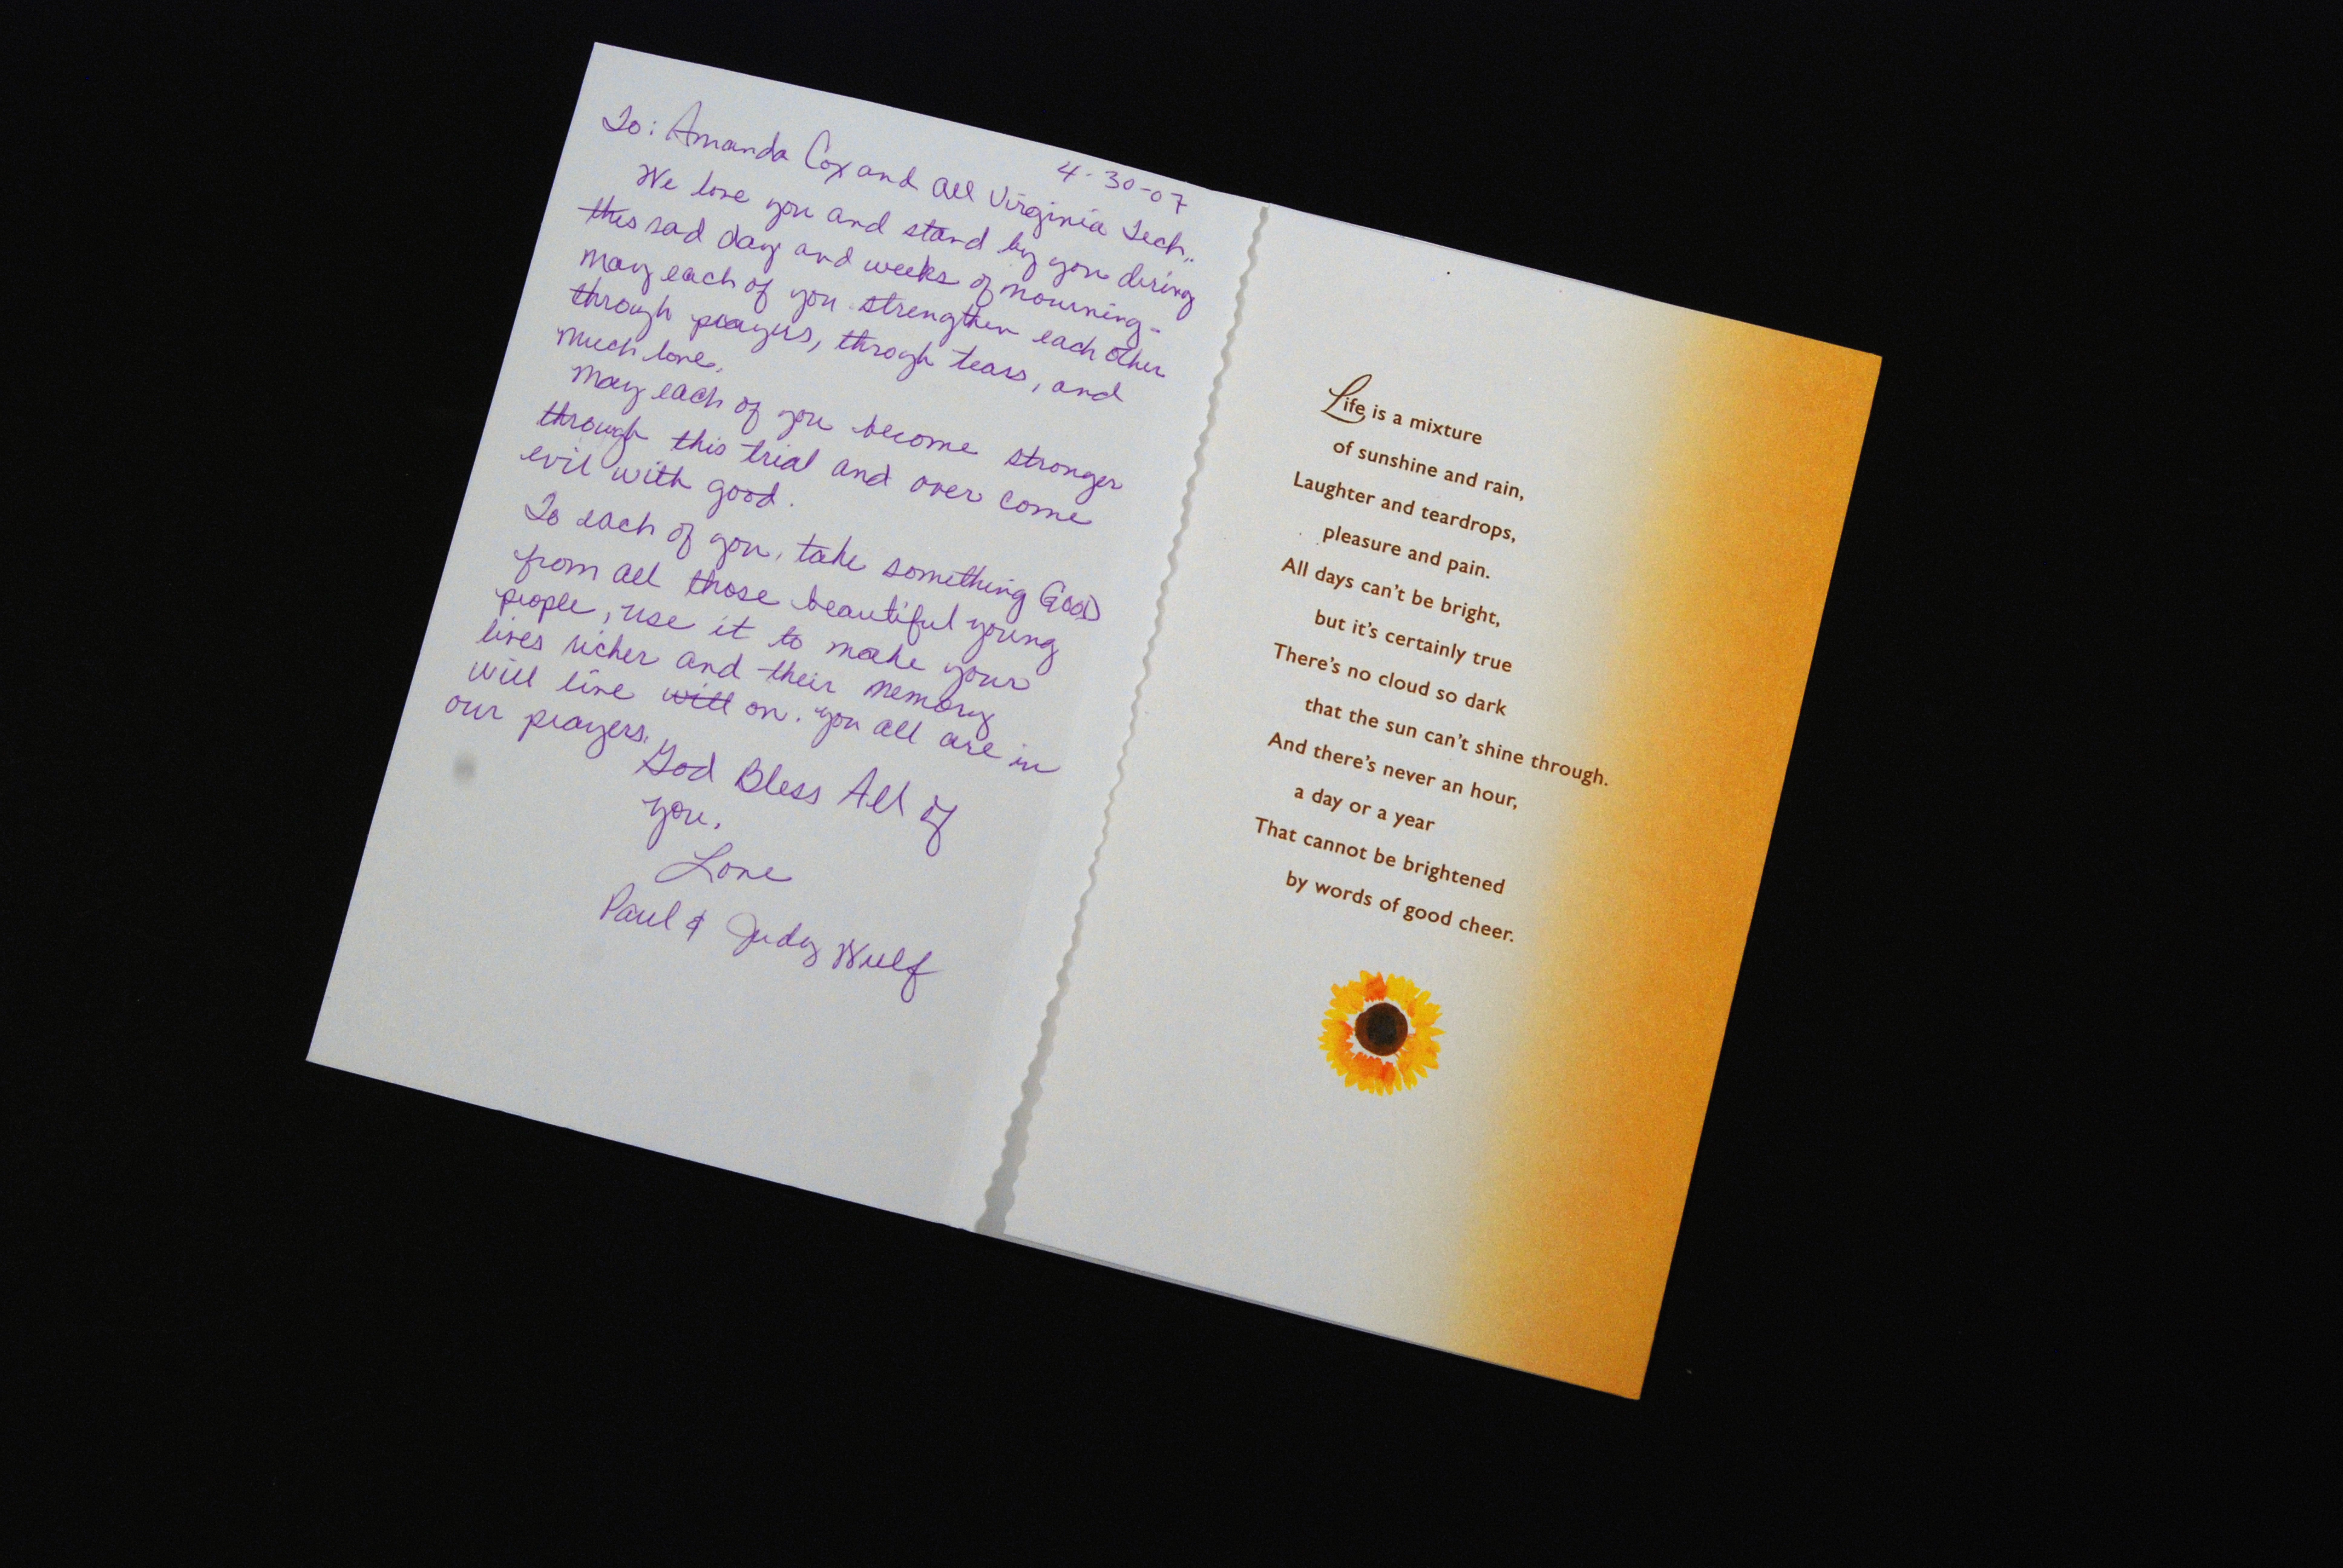 4-30-07
To: Amanda Cox and All Virginia Tech,,
We love you and stand by you during
this sad day and weeks of mourning-
May each of you strengthen each other
through prayers, throgh tears, and
much love.
May each of you become stronger
through this trial and over come
evil with good.
To each of you, take something GOOD
from all those beautiful young
people, use it to make your
lives richer and their memory
will live will on. you all are in
our prayers.
God Bless All of
you.
Love
Paul & Judy Wulf
Life is a mixture
of sunshine and rain,
Laughter and teardrops,
pleasure and pain.
All days can't be bright,
but it's certainly true
There's no cloud so dark
that the sun can't shine through.
And there's never an hour,
a day or a year
That cannot be brightened
by words of good cheer.